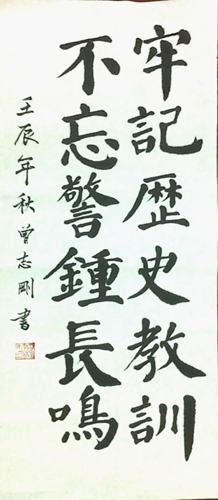 牢記歷史教訓
不忘警鍾長鳴
壬辰年秋曾志剛書